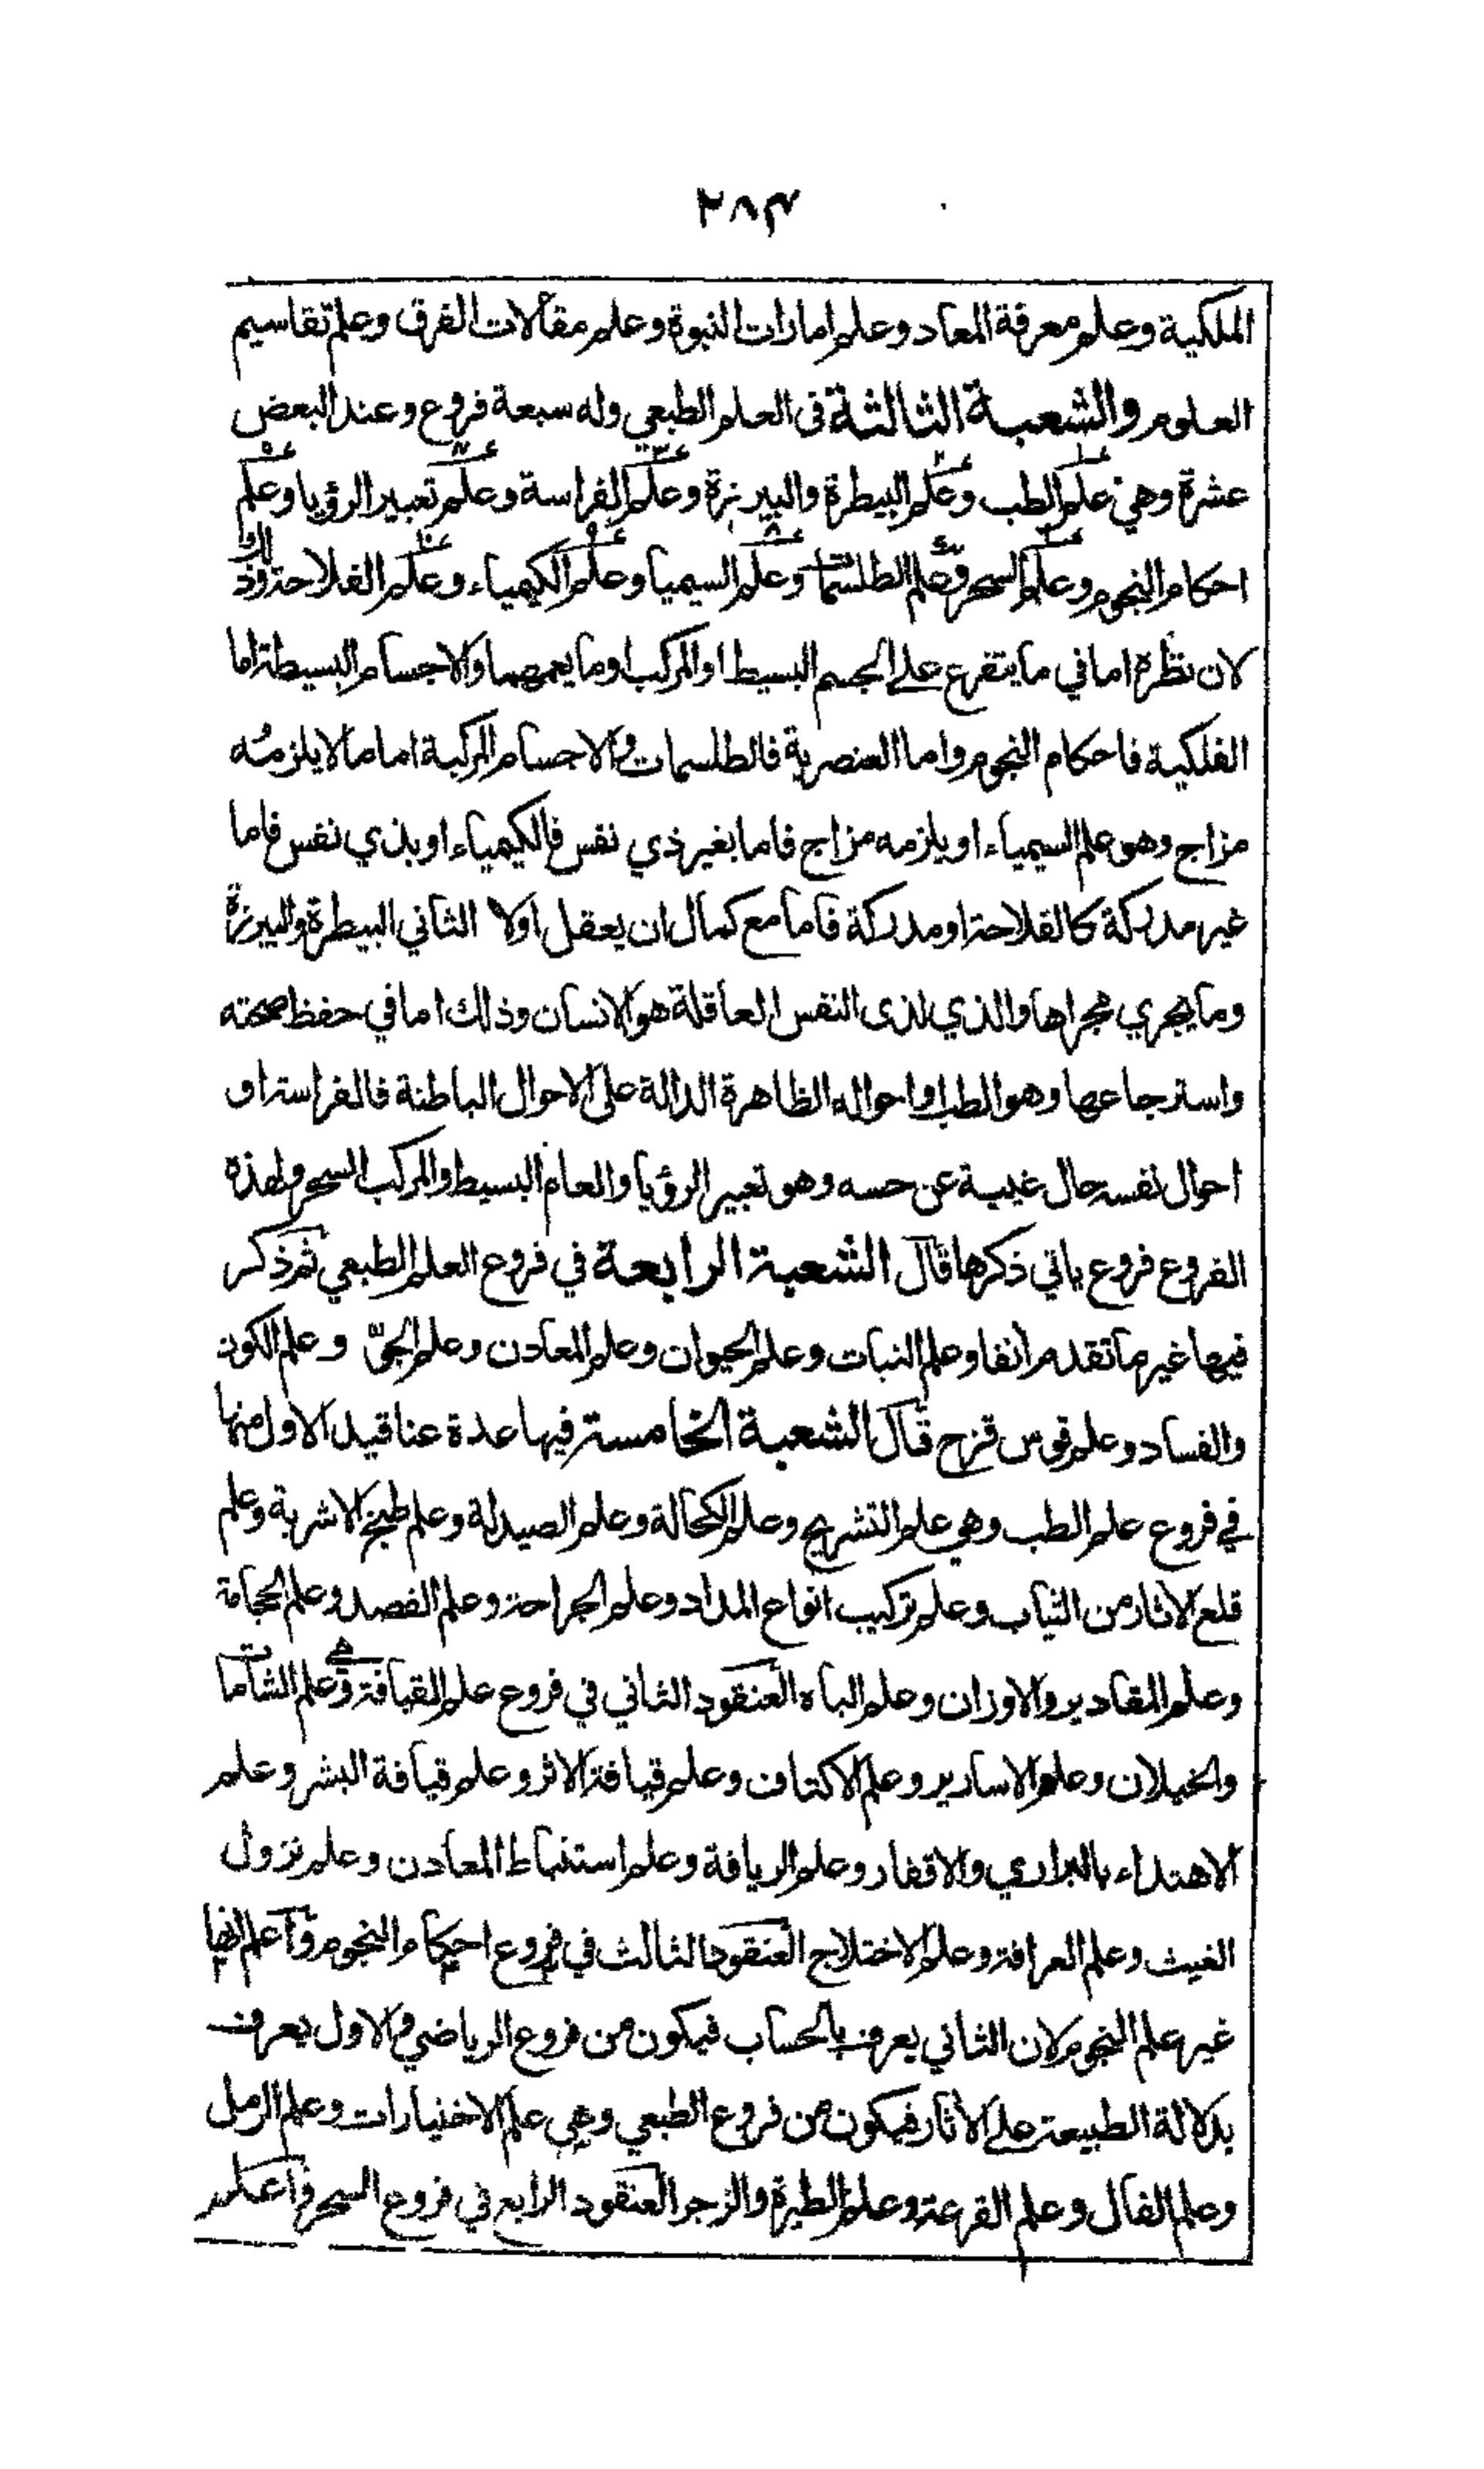 ٢٨٣
الملكية وعلم معرفة المعاد وعلم امارات النبوة وعلم مقالات الفرق وعلم تقاسيم
العلوم والشعبة الثالثة فى العلم الطبعي وله سبعة فروع وعند البعض
عشرة وهي علم الطب وعلم البيطرة والبيزرة وعلم الفراسة وعلم تعبير الرؤيا وعلم
احكام النجوم وعلم السحر وعلم الطلسمات وعلم السيميا وعلم الكيمياء وعلم الفلاحة وذلك
لان نظره اما في ما يتفرع على الجسم البسيط او المركب او ما يعمهما والاجسام البسيطة اما
الفلكية فاحكام النجوم واما العنصرية فالطلسمات والاجسام المركبة اما ما لا يلزمه
مزاج وهو علم السيمياء او يلزمه مزاج فاما بغير ذي نفس فالكيمياء او بذي نفس فاما
غير مدركة كالفلاحة او مدركة فاما مع كمال ان يعقل اولا الثاني البيطرة والبيزرة
وما يجري مجراها والذي لذى النفس العاقلة هو الانسان وذلك اما في حفظ صحته
واسترجاعها وهو الطب او احواله الظاهرة الدالة على الاحوال الباطنة فالفراسة او
احوال نفسه حال غيبية عن حسه وهو تعبير الرؤيا والعام البسيط والمركب السحر ولهذه
الفروع فروع ياتي ذكرها قال الشعبة الرابعة في فروع العلم الطبعي ثم ذكر
فيها غير ما تقدم انفا وعلم النبات وعلم الحيوان وعلم المعادن وعلم الجوّ وعلم الكون
والفساد وعلم قوس قزح قال الشعبة الخامسة فيها عدة عناقيد الاول منها
في فروع علم الطب وهي علم التشريح وعلم الكحالة وعلم الصيدلة وعلم طبخ الاشربة وعلم
قلع الاثار من الثياب وعلم تركيب انواع المداد وعلم الجراحة وعلم الفصد وعلم الحجامة
وعلم المقادير والاوزان وعلم الباه العنقود الثاني في فروع علم القيافة وهي علم الشامات
والخيلان وعلم الاسارير وعلم الاكتاف وعلم قيافة الاثر وعلم قيافة البشر وعلم
الاهتداء بالبراري والاقفار وعلم الريافة وعلم استنباط المعادن وعلم نزول
الغيث وعلم العرافة وعلم الاختلاج العنقود الثالث في فروع احكام النجوم واعلم انها
غير علم النجوم لان الثاني يعرف بالحساب فيكون من فروع الرياضي والاول يعرف
بدلالة الطبيعة على الاثار فيكون من فروع الطبعي وهي علم الاختيارات وعلم الرمل
وعلم الفال وعلم القرعة وعلم الطيرة والزجر العنقود الرابع في فروع السحر واعلم